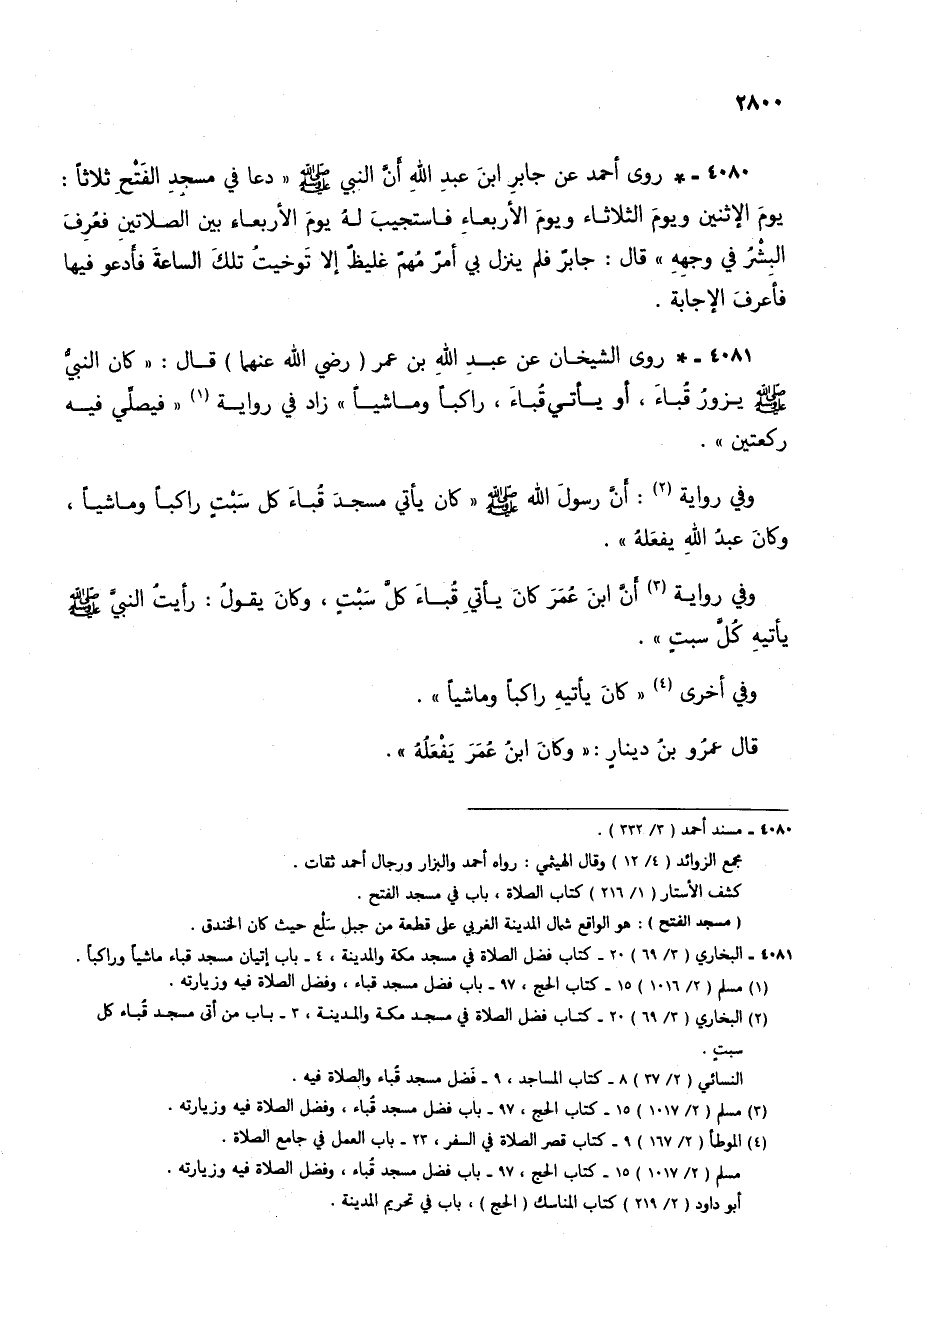 ٢٨٠٠
٤٠٨٠ - * روى أحمد عن جابرِ ابنَ عبدِ اللهِ أَنَّ النبي ﷺ « دعا في مسجدِ الفَتْحِ ثلاثاً :
يومَ الإثنين ويومَ الثلاثاء ويومَ الأربعاءِ فاستجيبَ لهُ يومَ الأربعاء بين الصلاتينِ فعُرِفَ
البِشْرُ في وجههِ » قال : جابرٌ فلم ينزل بي أمرٌ مُهمٌ غليظٌ إلا تَوخيتُ تلكَ الساعةَ فأدعو فيها
فأعرفَ الإجابة .
٤٠٨١ - * روى الشيخان عن عبدِ اللهِ بن عمر ( رضي الله عنهما ) قال : « كان النبيُّ
ﷺ يزورُ قُباءَ ، أو يأتي قُباءَ ، راكباً وماشياً » زاد في رواية (١) « فيصلّي فيه
ركعتين » .
وفي رواية (٢) : أَنَّ رسولَ الله ﷺ « كان يأتي مسجدَ قُباءَ كل سَبْتٍ راكباً وماشياً ،
وكانَ عبدُ اللهِ يفعَلهُ » .
وفي رواية (٣) أَنَّ ابنَ عُمَرَ كانَ يأتيِ قُباءَ كلَّ سَبْتٍ ، وكانَ يقولُ : رأيتُ النبيَّ ﷺ
يأتيهِ كُلَّ سبتٍ » .
وفي أخرى (٤) « كانَ يأتيهِ راكباً وماشياً » .
قال عمرُو بنُ دينارٍ : « وكانَ ابنُ عُمَرَ يَفْعَلُهُ » .
٤٠٨٠ - مسند أحمد ( ٣/ ٣٣٢ ) .
مجمع الزوائد ( ٤/ ١٢ ) وقال الهيثمي : رواه أحمد والبزار ورجال أحمد ثقات .
كشف الأستار ( ١/ ٢١٦ ) كتاب الصلاة ، باب في مسجد الفتح .
( مسجد الفتح ) : هو الواقع شمال المدينة الغربي على قطعة من جبل سَلْع حيث كان الخندق .
٤٠٨١ - البخاري ( ٣/ ٦٩ ) ٢٠ - كتاب فضل الصلاة في مسجد مكة والمدينة ، ٤ - باب إتيان مسجد قباء ماشياً وراكباً .
(١) مسلم ( ٢/ ١٠١٦ ) ١٥ - كتاب الحج ، ٩٧ - باب فضل مسجد قباء ، وفضل الصلاة فيه وزيارته .
(٢) البخاري ( ٣/ ٦٩ ) ٢٠ - كتاب فضل الصلاة في مسجد مكة والمدينة ، ٣ - باب من أتى مسجد قُباء كل
سبتٍ .
النسائي ( ٢/ ٣٧ ) ٨ - كتاب المساجد ، ٩ - فَضل مسجد قُباء والصلاة فيه .
(٣) مسلم ( ٢/ ١٠١٧ ) ١٥ - كتاب الحج ، ٩٧ - باب فضل مسجد قُباء ، وفضل الصلاة فيه وزيارته .
(٤) الموطأ ( ٢/ ١٦٧ ) ٩ - كتاب قصر الصلاة في السفر ، ٢٣ - باب العمل في جامع الصلاة .
مسلم ( ٢/ ١٠١٧ ) ١٥ - كتاب الحج ، ٩٧ - باب فضل مسجد قُباء ، وفضل الصلاة فيه وزيارته .
أبو داود ( ٢/ ٢١٩ ) كتاب المناسك ( الحج ) ، باب في تحريم المدينة .